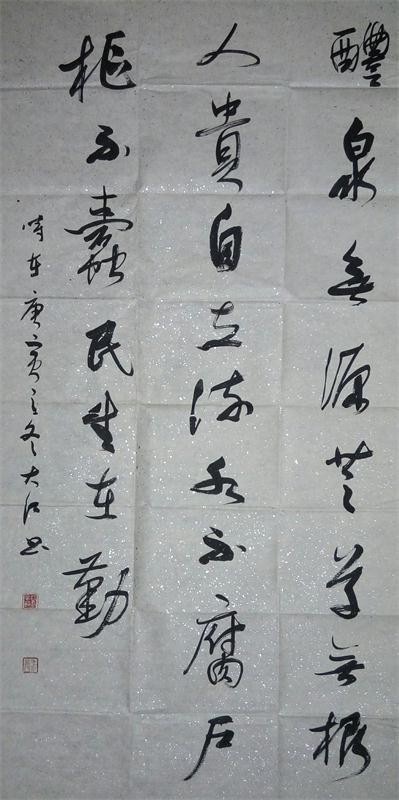 醴泉無源芝草無根
人貴自立流水不腐户
枢不蠹民生在勤
時在庚寅之冬大江书